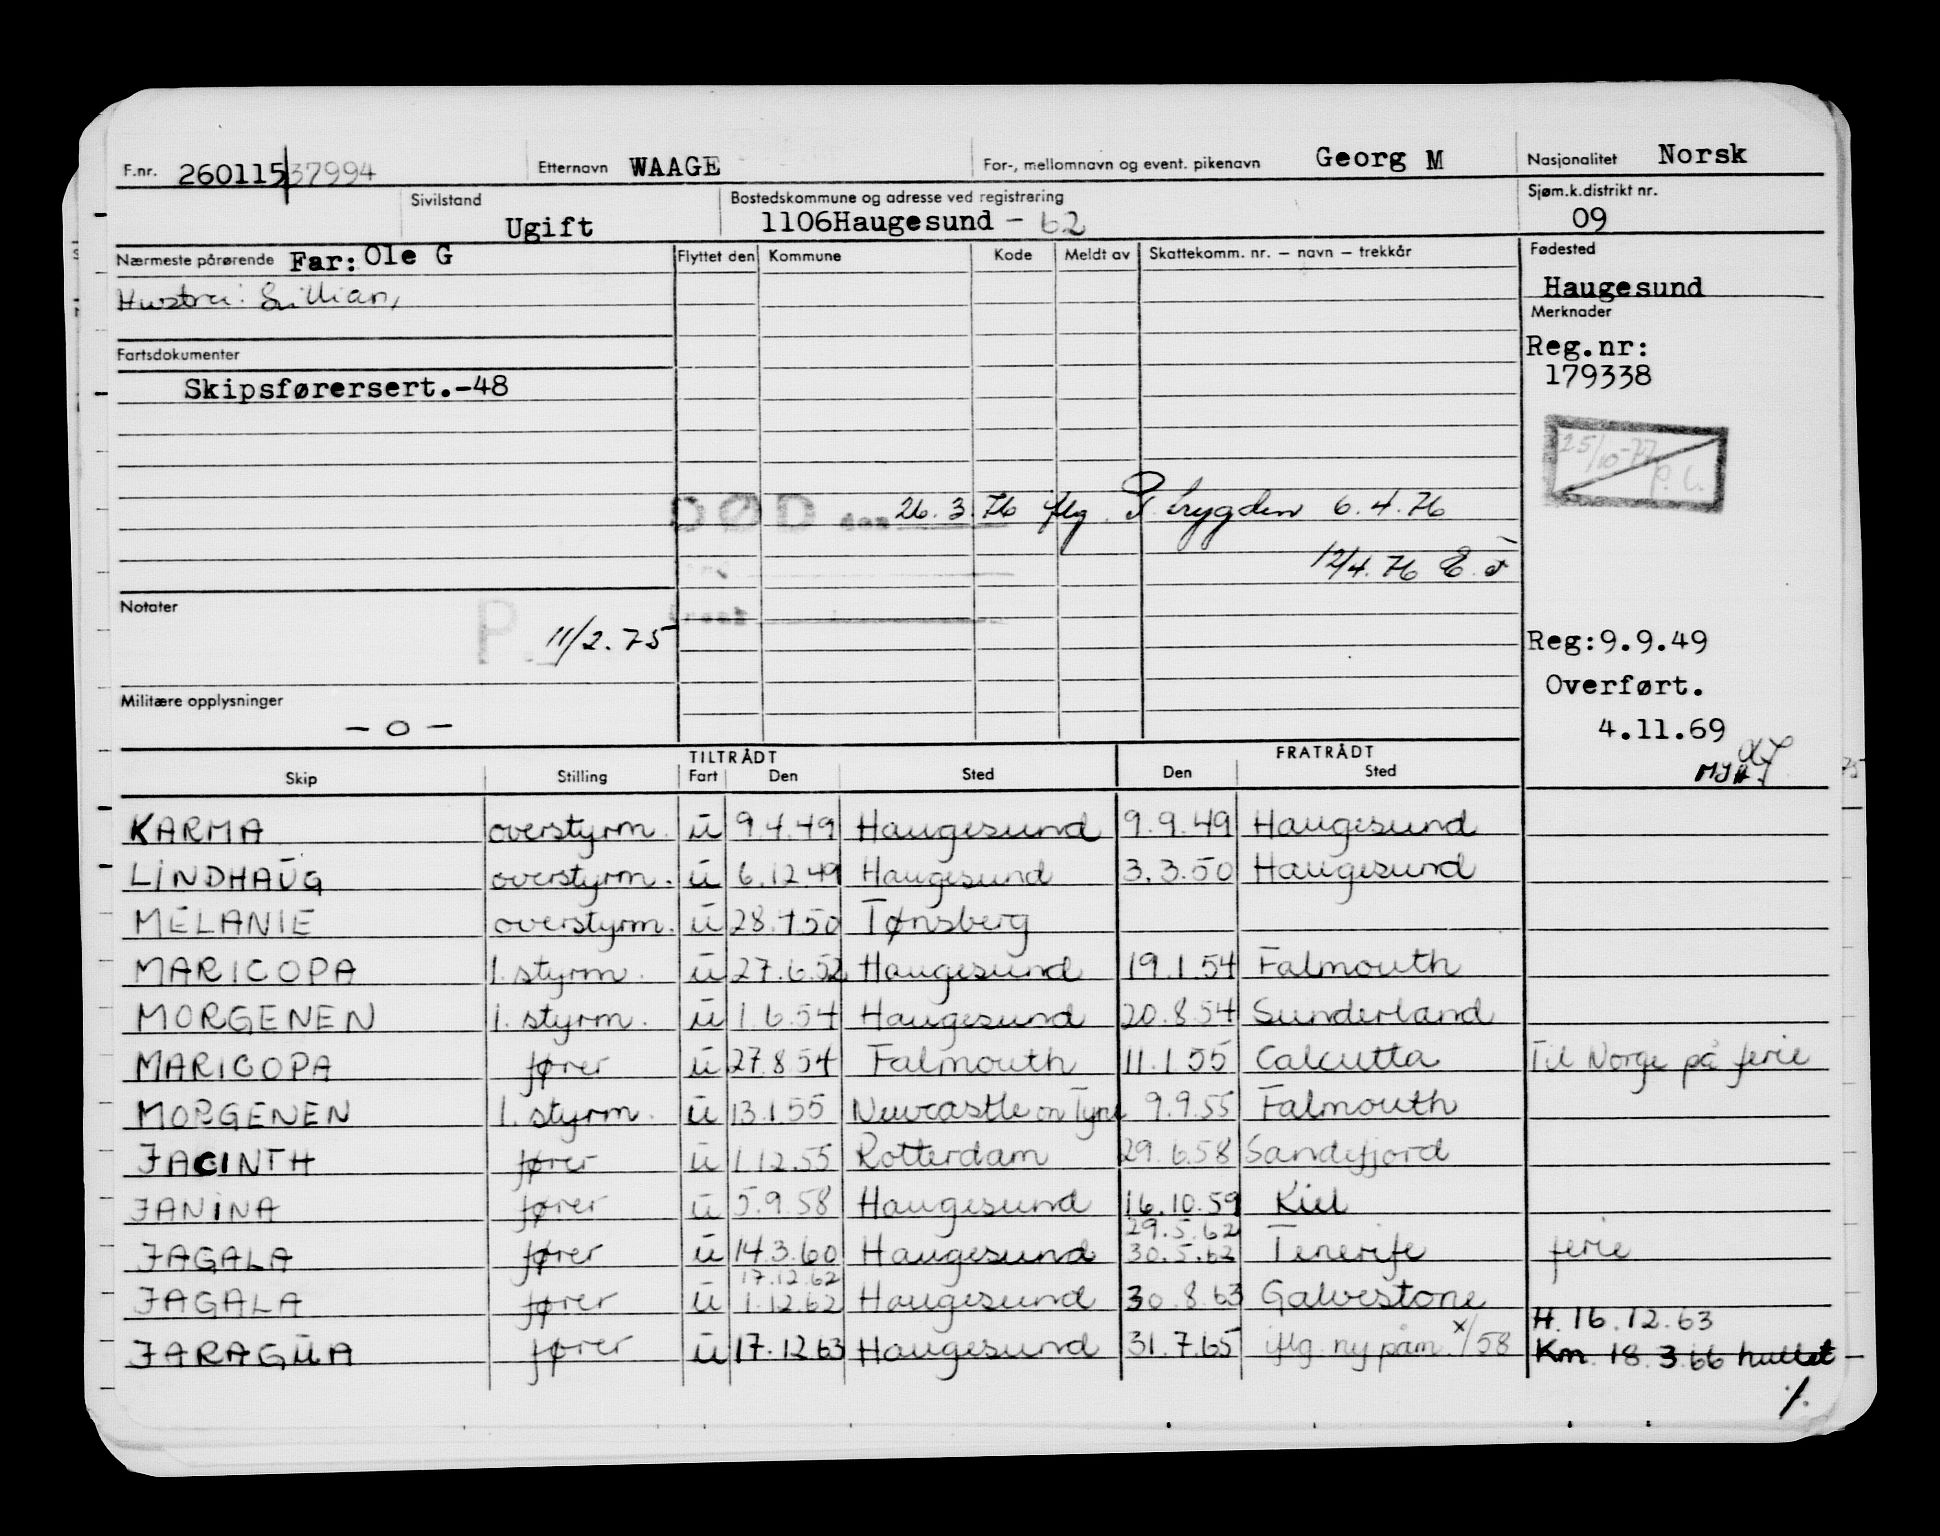 F.nr. 26011537994 Etternavn WAAGE For-, mellomnavn og event. pikenavn Georg M Nasjonalitet Norsk
Sivilstand Ugift Bostedskommune og adresse ved registrering 1106Haugesund - 62 Sjøm.k.distrikt nr. 09
Nærmeste pårørende Far: Ole G Flyttet den Kommune Kode Meldt av Skattekomm. nr. – navn – trekkår Fødested
Hustru: Lillian, Haugesund
Merknader
Fartsdokumenter Reg.nr:
Skipsførersert.-48 179338
25/10-77 P.L.
DØD den 26.3.76 flg. P. trygden 6.4.76
12/4.76 E.
Notater
P. 11/2.75 Reg:9.9.49
Overført.
Militære opplysninger
- o - 4.11.69
TILTRÅDT FRATRÅDT
Skip Stilling Fart Den Sted Den Sted
KARMA overstyrm. u 9.4.49 Haugesund 9.9.49 Haugesund
LINDHAUG overstyrm. u 6.12.49 Haugesund 3.3.50 Haugesund
MELANIE overstyrm. u 28.7.50 Tønsberg
MARICOPA 1. styrm. u 27.6.52 Haugesund 19.1.54 Falmouth
MORGENEN 1. styrm. u 1.6.54 Haugesund 20.8.54 Sunderland
MARICOPA fører u 27.8.54 Falmouth 11.1.55 Calcutta Til Norge på ferie
MORGENEN 1. styrm. u 13.1.55 Newcastle on Tyne 9.9.55 Falmouth
JACINTH fører u 1.12.55 Rotterdam 29.6.58 Sandefjord
JANINA fører u 5.9.58 Haugesund 16.10.59 Kiel
29.5.62
JAGALA fører u 14.3.60 Haugesund 30.5.62 Tenerife ferie
17.12.62
JAGALA fører u 1.12.62 Haugesund 30.8.63 Galvestone
H. 16.12.63
JARAGUA fører u 17.12.63 Haugesund 31.7.65 iflg. ny påm. x/58 Km. 18.3.66 hullet
%.